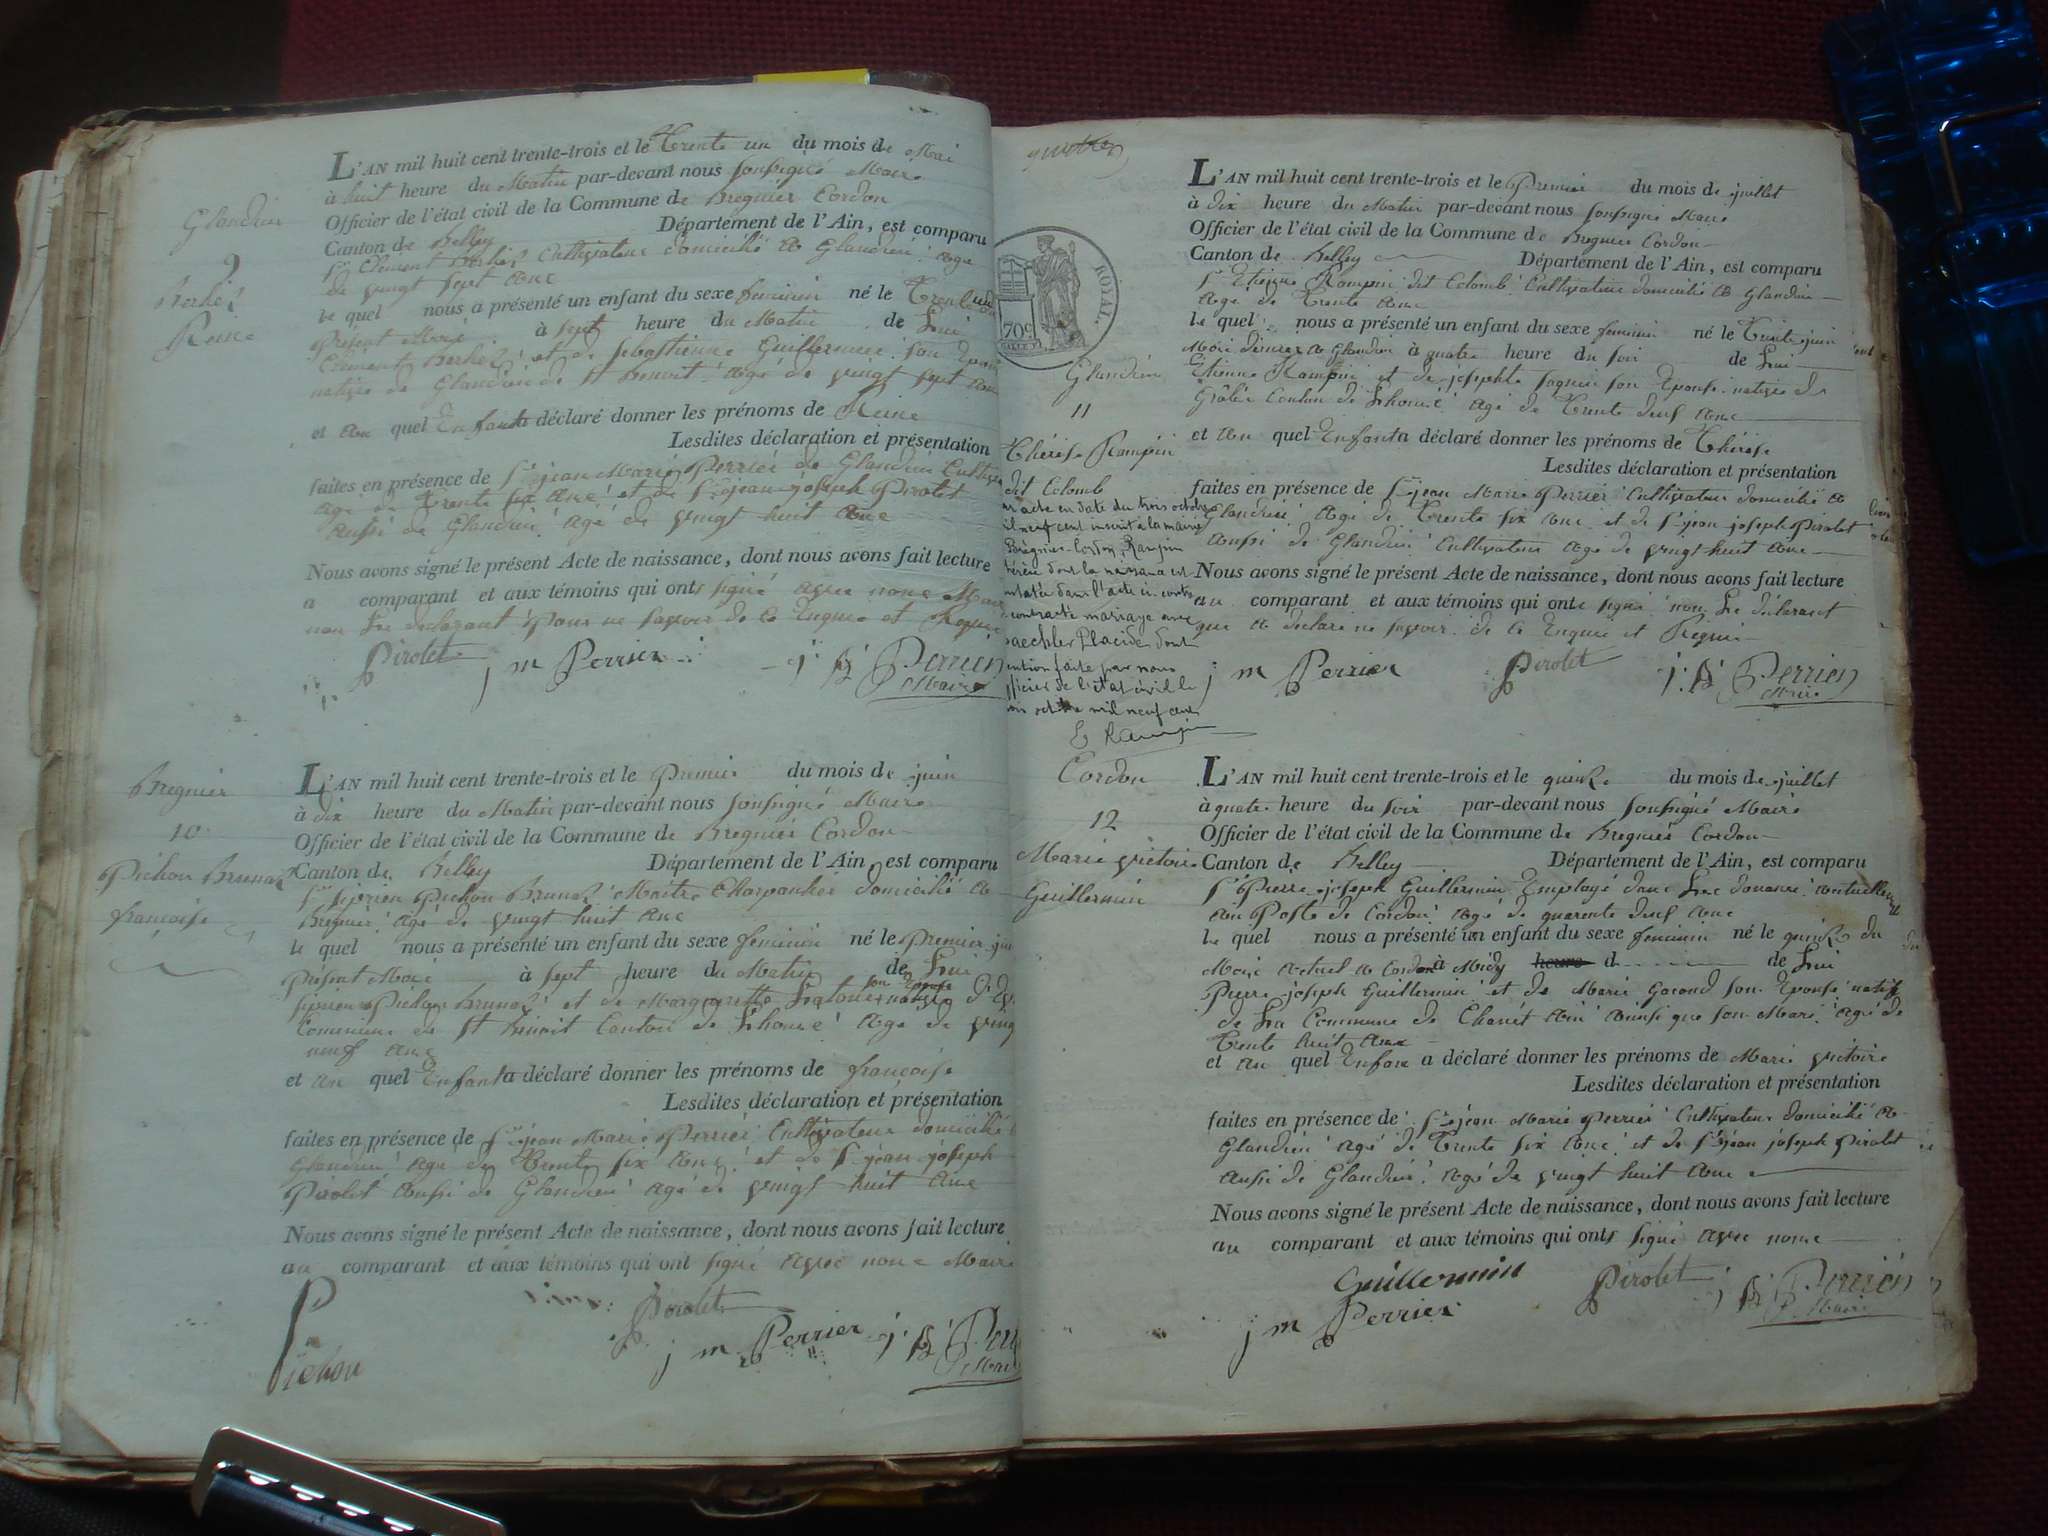 Glandieu
9
Berliez
Reine
L'AN mil huit cent trente-trois et le Trente un du mois de Mai
à huit heure du Matin par-devant nous soussigné Maire
Officier de l'état civil de la Commune de Bregnier Cordon
Canton de Belley Département de l'Ain, est comparu
Sr Clement Cultivateur domicilié a Glandieu agé
de vingt sept ans
le quel nous a présenté un enfant du sexe feminin né le Trente un
Présent Mois à sept heure du Matin de Lui
Clement et de Sebastienne Guillermier son Epouse
native de Glandieu de St Benoit agé de vingt sept ans
et au quel Enfant a déclaré donner les prénoms de Reine
Lesdites déclaration et présentation
faites en présence de Sr jean Marie Perrier de Glandieu
agé de Trente six ans et de Sr jean joseph Pirolet
aussi de Glandieu agé de vingt huit ans
Nous avons signé le présent Acte de naissance, dont nous avons fait lecture
a comparant et aux témoins qui ont signé avec nous Maire
non Le declarant pour ne savoir de ce Enquis et Requis
Pirolet j m Perrier j. B. Perrier
Maire
Bregnier
10
Pichon Brunaz
françoise
L'AN mil huit cent trente-trois et le Premier du mois de juin
à dix heure du Matin par-devant nous soussigné Maire
Officier de l'état civil de la Commune de Bregnier Cordon
Canton de Belley Département de l'Ain, est comparu
Sr Siprien Pichon Brunaz Maitre Charpantier domicilié a
Bregnier agé de vingt huit ans
le quel nous a présenté un enfant du sexe feminin né le Premier
Présent Mois à sept heure du Matin de Lui
son Epouse
Siprien Pichon Brunaz et de Margueritte native
Commune de St Benoit Canton de Lhouis agé de
neuf ans
et au quel Enfant a déclaré donner les prénoms de françoise
Lesdites déclaration et présentation
faites en présence de Sr jean Marie Perrier Cultivateur domicilié
Glandieu agé de Trente six ans et de Sr jean joseph
Pirolet aussi de Glandieu agé de vingt huit ans
Nous avons signé le présent Acte de naissance, dont nous avons fait lecture
au comparant et aux témoins qui ont signé avec nous Maire
Pichon
Pirolet
j m Perrier j. B.
ROYAL.
70c
Glandieu
11
Thérèse Rampin
dit Colomb
acte en date du trois octobre
mil neuf cent inscrit à la mairie
Brégnier-Cordon, Rampin
Thérèse dont la naissance est
constatée dans l'acte ci-contre
contracté mariage avec
Placide dont
mention faite par nous
officier de l'état civil le
octobre mil neuf cent
E Rampin
L'AN mil huit cent trente-trois et le Premier du mois de juillet
à dix heure du Matin par-devant nous soussigné Maire
Officier de l'état civil de la Commune de Bregnier Cordon
Canton de Belley Département de l'Ain, est comparu
Sr Etienne Rampin dit Colomb Cultivateur domicilié a Glandieu
agé de Trente ans
le quel nous a présenté un enfant du sexe feminin né le Trente juin
Mois dernier a Glandieu à quatre heure du soir de Lui
Etienne Rampin et de josephte son Epouse native de
Canton de Lhouis agé de Trente deux ans
et au quel Enfant a déclaré donner les prénoms de Thérèse
Lesdites déclaration et présentation
faites en présence de Sr jean Marie Perrier Cultivateur domicilié a
Glandieu agé de Trente six ans et de Sr jean joseph Pirolet
aussi de Glandieu Cultivateur agé de vingt huit ans
Nous avons signé le présent Acte de naissance, dont nous avons fait lecture
au comparant et aux témoins qui ont signé non Le déclarant
que a declaré ne savoir de ce Enquis et Requis
j m Perrier Pirolet j. B. Perrier
Maire
Cordon
12
Marie victoire
Guillermin
L'AN mil huit cent trente-trois et le quinze du mois de juillet
à quatre heure du soir par-devant nous soussigné Maire
Officier de l'état civil de la Commune de Bregnier Cordon
Canton de Belley Département de l'Ain, est comparu
Sr Pierre joseph Guillermin Employé dans Les douanes actuellement
au Poste de Cordon agé de quarente deux ans
le quel nous a présenté un enfant du sexe feminin né le quinze du
Mois actuel a Cordon à Midy heure d de Lui
Pierre joseph Guillermin et de Marie Gocond son Epouse native
de La Commune de ainsi que son Mari agé de
Trente huit ans
et au quel Enfant a déclaré donner les prénoms de Marie victoire
Lesdites déclaration et présentation
faites en présence de Sr jean Marie Perrier Cultivateur domicilié a
Glandieu agé de Trente six ans et de Sr jean joseph Pirolet
aussi de Glandieu agé de vingt huit ans
Nous avons signé le présent Acte de naissance, dont nous avons fait lecture
au comparant et aux témoins qui ont signé avec nous
Guillermin Pirolet j. B. Perrier
j m Perrier Maire